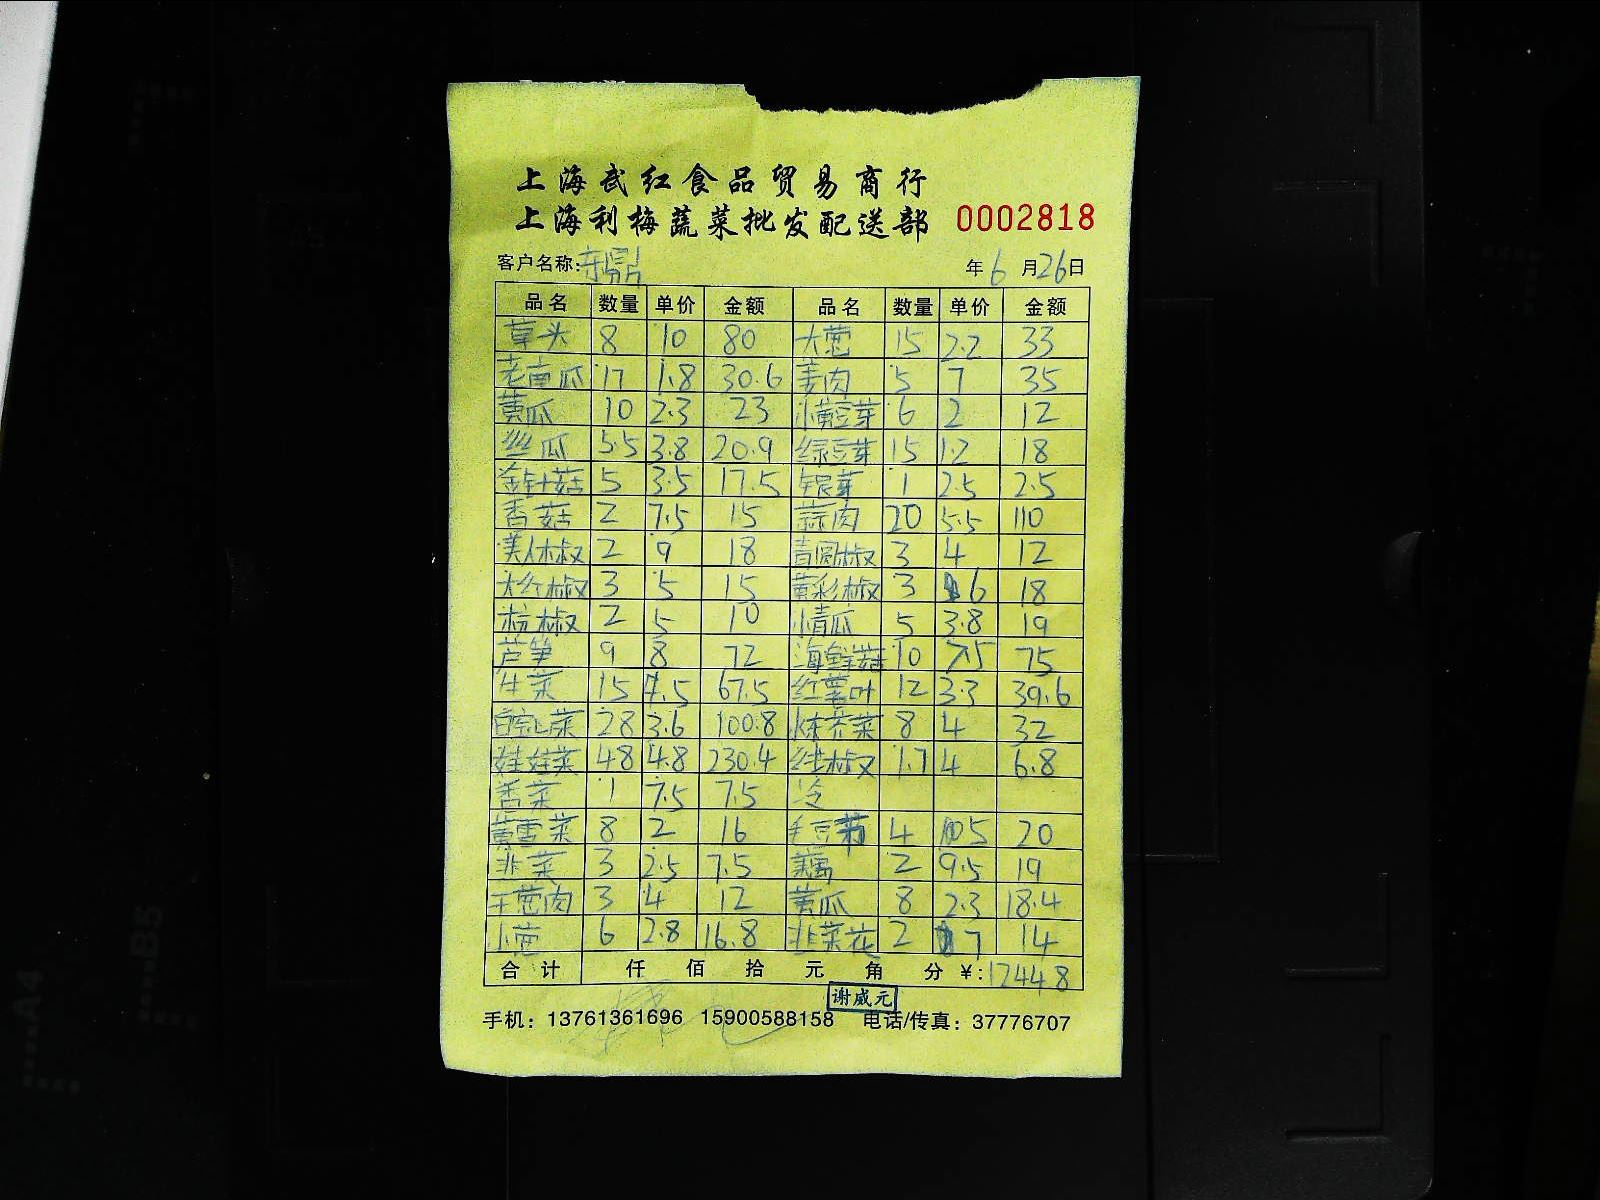 上海武红食品贸易商行
上海利梅蔬菜批发配送部 0002818
客户名称: 东鼎 年 6 月 26 日
品名 数量 单价 金额 品名 数量 单价 金额
草头 8 10 80 大葱 15 2.2 33
老南瓜 17 1.8 30.6 姜肉 5 7 35
黄瓜 10 2.3 23 小黄豆芽 6 2 12
丝瓜 5.5 3.8 20.9 绿豆芽 15 1.2 18
金针菇 5 3.5 17.5 银芽 1 2.5 2.5
香菇 2 7.5 15 蒜肉 20 5.5 110
美人椒 2 9 18 青圆椒 3 4 12
大红椒 3 5 15 黄彩椒 3 6 18
杭椒 2 5 10 小青瓜 5 3.8 19
芦笋 9 8 72 海鲜菇 10 7.5 75
生菜 15 4.5 67.5 红薯叶 12 3.3 39.6
28 3.6 100.8 菜 8 4 32
娃娃菜 48 4.8 230.4 线椒 1.7 4 6.8
香菜 1 7.5 7.5 冷
黄雪菜 8 2 16 毛豆 4 5 20
韭菜 3 2.5 7.5 藕 2 9.5 19
洋葱肉 3 4 12 黄瓜 8 2.3 18.4
小葱 6 2.8 16.8 韭菜花 2 7 14
合计 仟 佰 拾 元 角 分 ¥: 1244.8
谢威元
手机: 13761361696 15900588158 电话/传真: 37776707